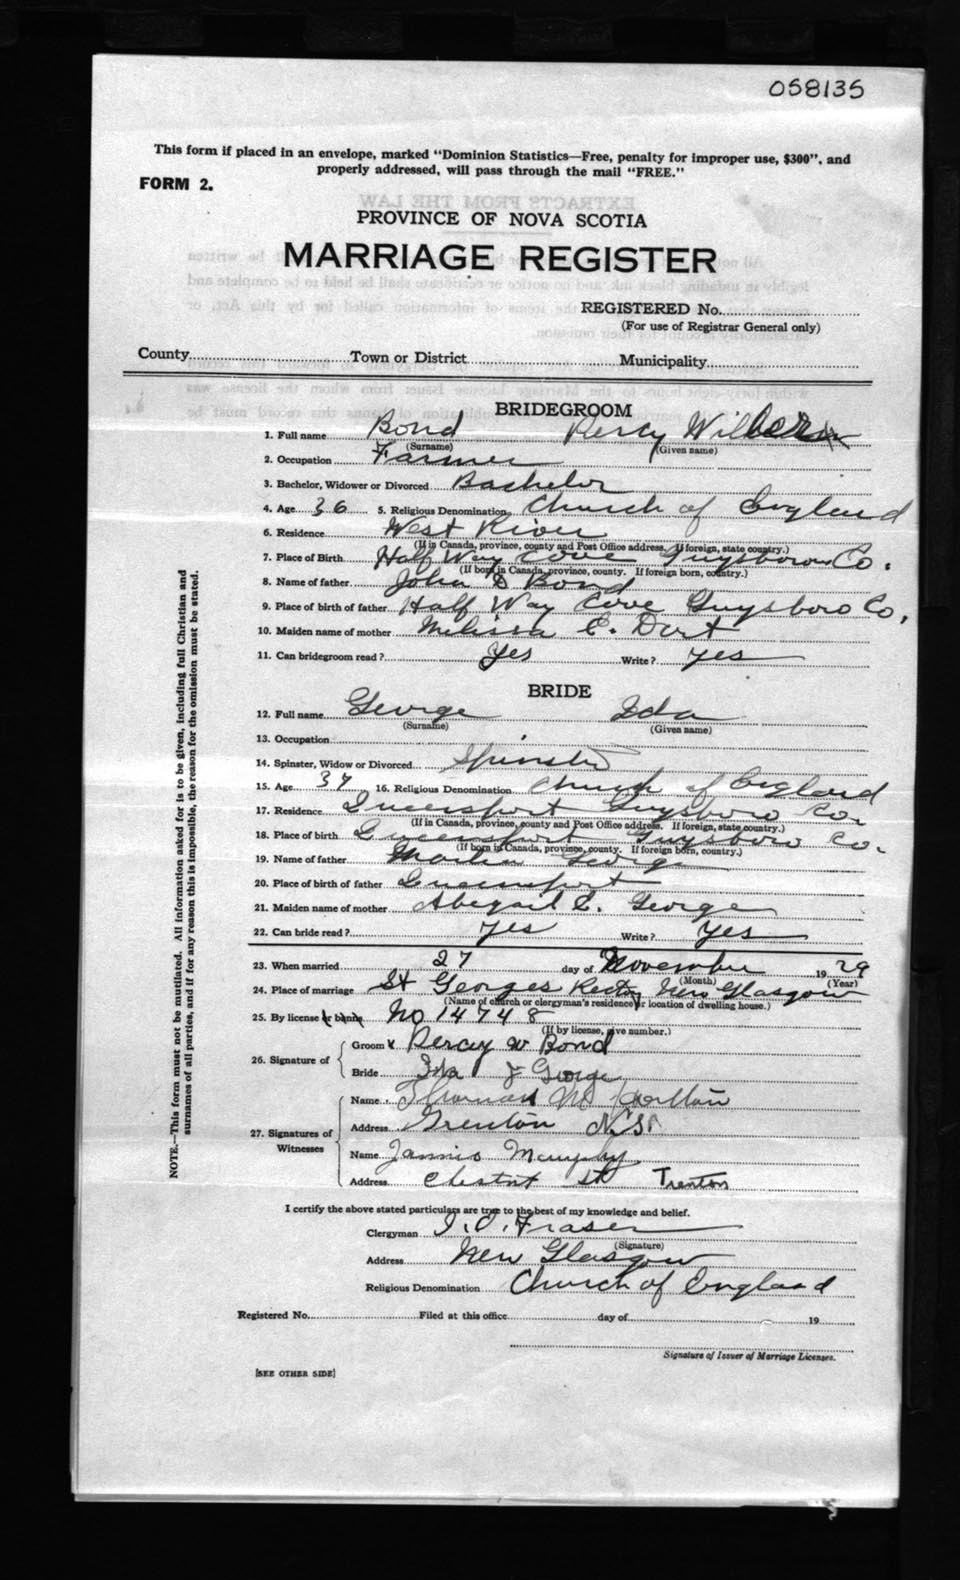 058135
This form if placed in an envelope, marked "Dominion Statistics—Free, penalty for improper use, $300", and
properly addressed, will pass through the mail "FREE."
FORM 2.
PROVINCE OF NOVA SCOTIA
MARRIAGE REGISTER
REGISTERED No.
(For use of Registrar General only)
County Town or District Municipality
BRIDEGROOM
1. Full name Bond Percy Wilber
(Surname) (Given name)
2. Occupation Farmer
3. Bachelor, Widower or Divorced Bachelor
4. Age 36 5. Religious Denomination Church of England
6. Residence West River
(If in Canada, province, county and Post Office address. If foreign, state country.)
7. Place of Birth Half Way Cove Guysboro Co.
(If born in Canada, province, county. If foreign born, country.)
8. Name of father John D Bond
9. Place of birth of father Half Way Cove Guysboro Co.
10. Maiden name of mother Melissa E. Dort
11. Can bridegroom read? Yes Write? Yes
BRIDE
12. Full name George Ida
(Surname) (Given name)
13. Occupation
14. Spinster, Widow or Divorced Spinster
15. Age 37 16. Religious Denomination Church of England
17. Residence Queensport Guysboro Co.
(If in Canada, province, county and Post Office address. If foreign, state country.)
18. Place of birth Queensport Guysboro Co.
(If born in Canada, province, county. If foreign born, country.)
19. Name of father Martin George
20. Place of birth of father Queensport
21. Maiden name of mother Abegail George
22. Can bride read? Yes Write? Yes
23. When married 27 day of November 1929
(Month) (Year)
24. Place of marriage St Georges Rectory New Glasgow
(Name of church or clergyman's residence or location of dwelling house.)
25. By license or banns No 14748
(If by license, give number.)
26. Signature of Groom x Percy W Bond
Bride Ida J George
27. Signatures of Witnesses
Name Thomas
Address Trenton N.S.
Name Murphy
Address Chestnut St Trenton
I certify the above stated particulars are true to the best of my knowledge and belief.
Clergyman Fraser
(Signature)
Address New Glasgow
Religious Denomination Church of England
Registered No. Filed at this office day of 19
Signature of Issuer of Marriage Licenses.
[SEE OTHER SIDE]
NOTE.—This form must not be mutilated. All information asked for is to be given, including full Christian and
surnames of all parties, and if for any reason this is impossible, the reason for the omission must be stated.